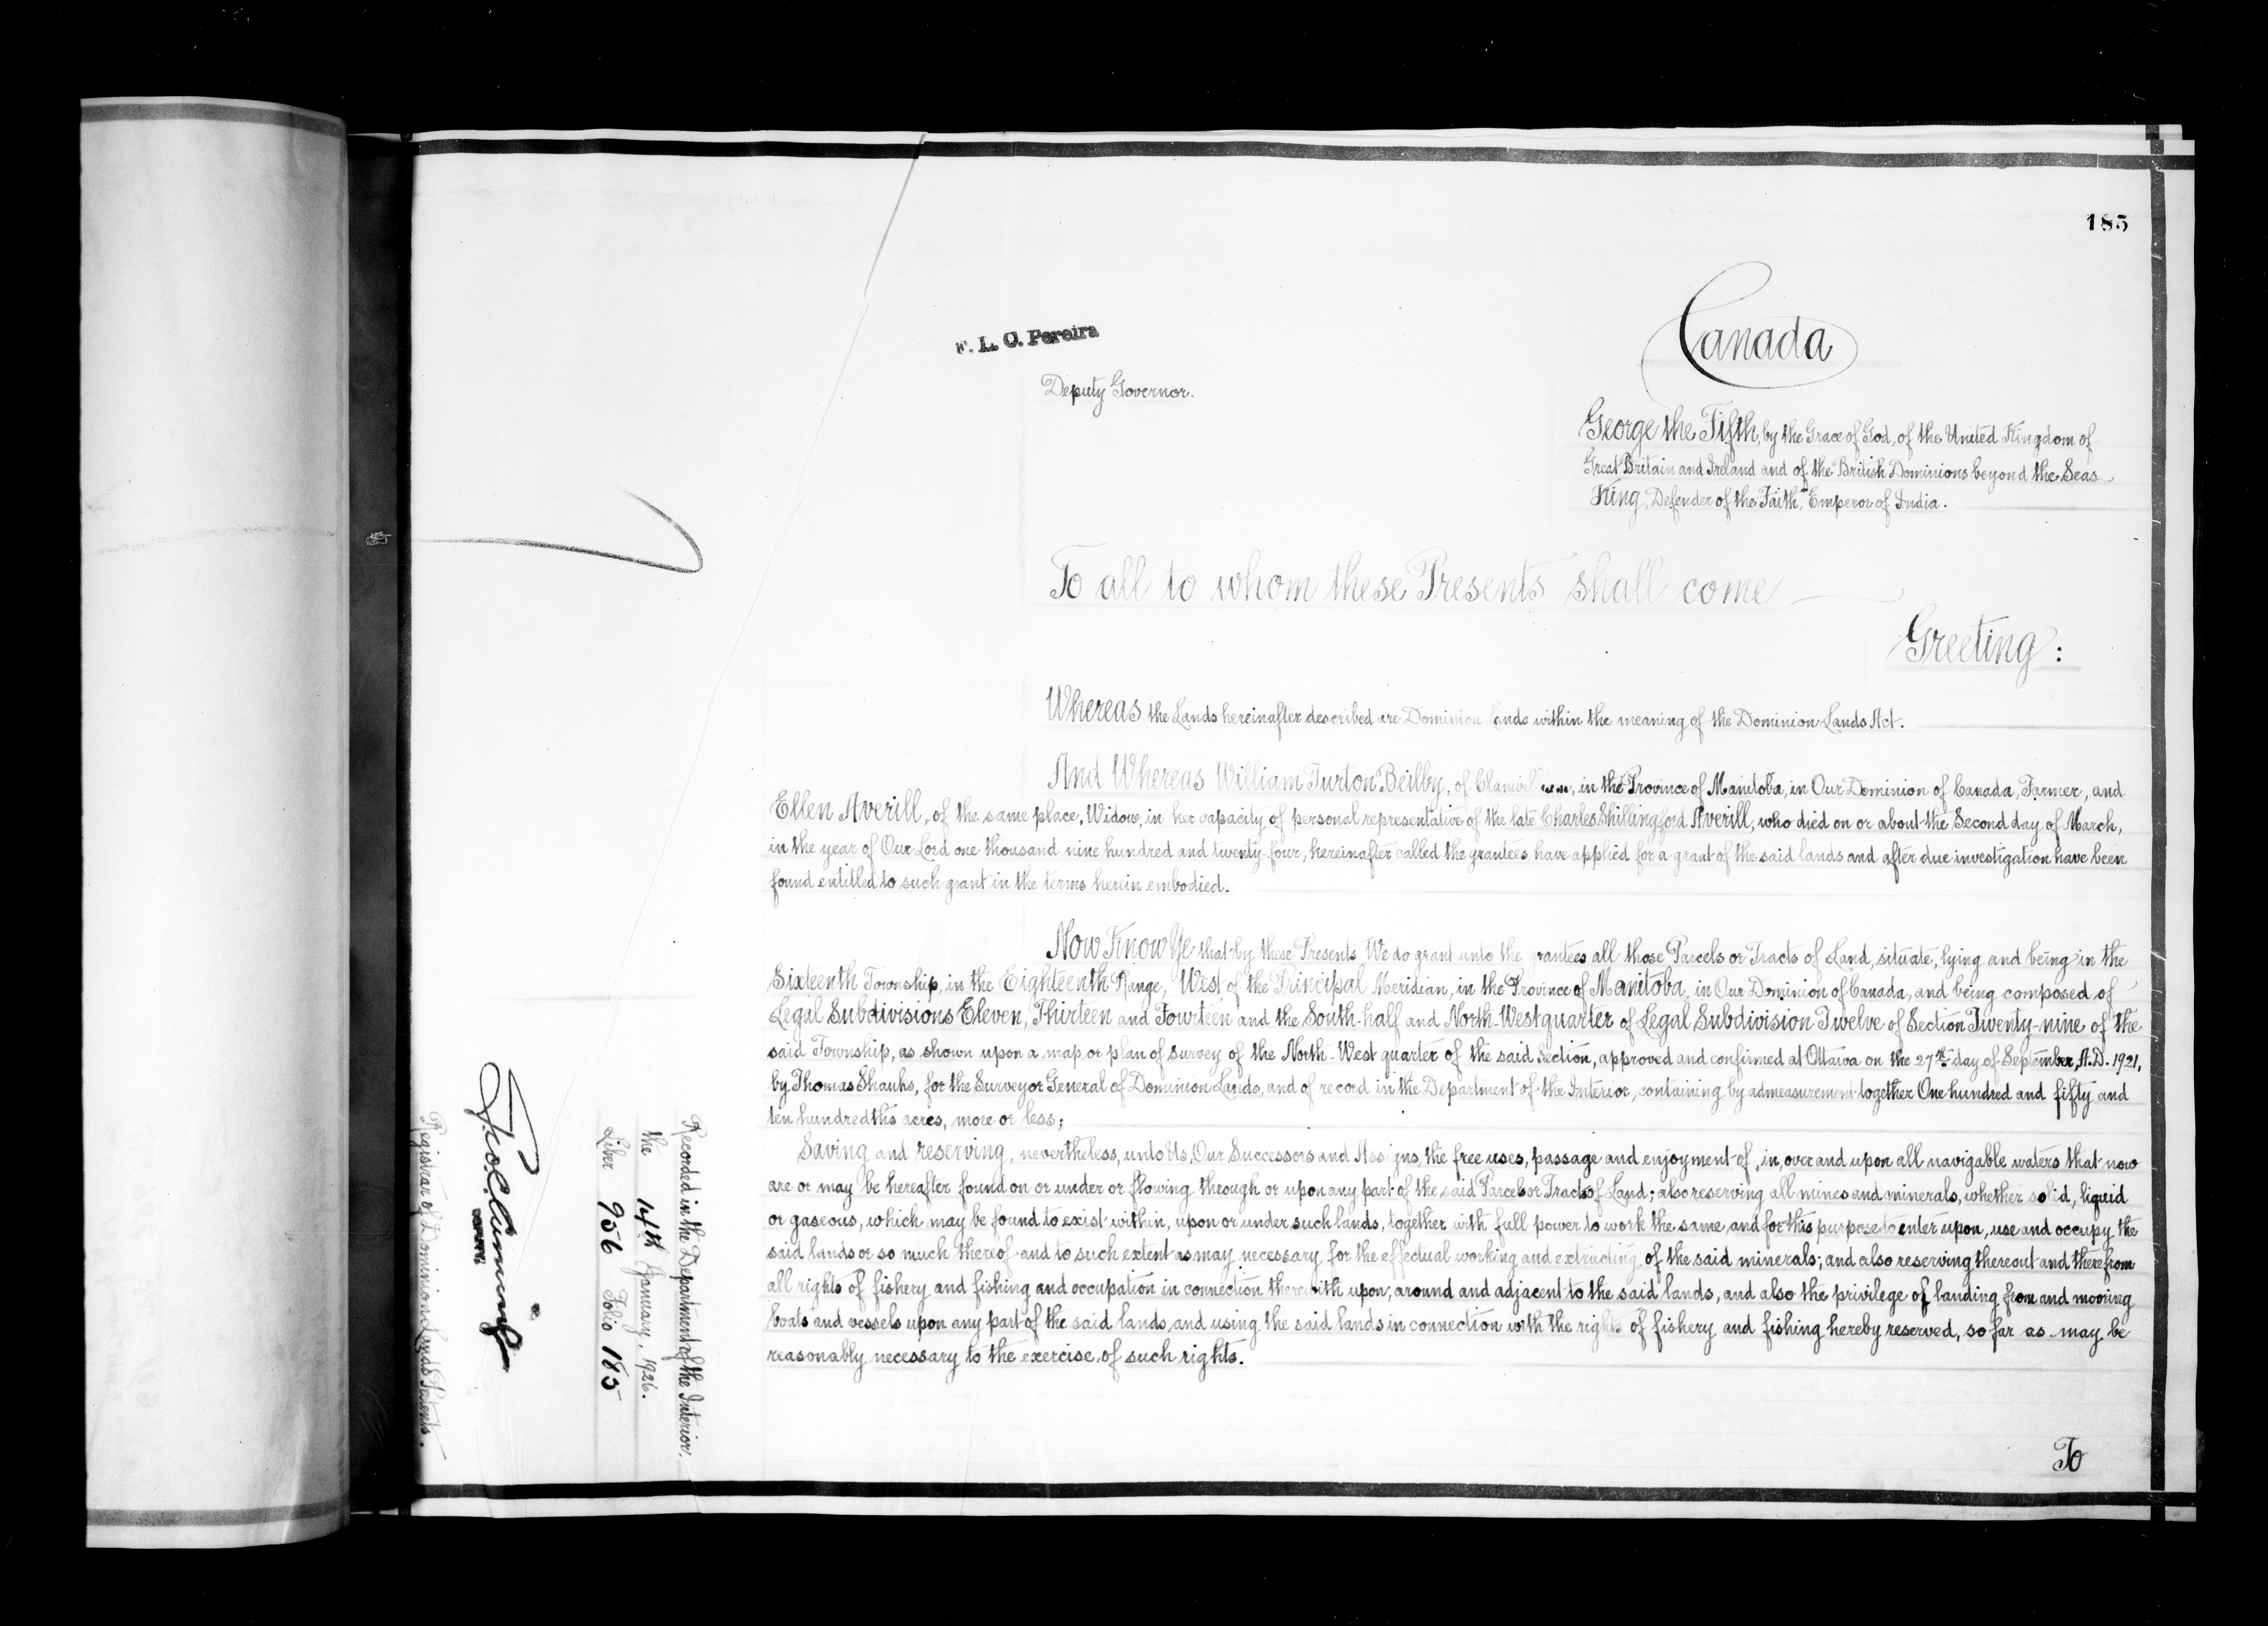 185
Canada
F. L. C. Pereira
Deputy Governor.
George the Fifth, by the Grace of God, of the United Kingdom of
Great Britain and Ireland and of the British Dominions beyond the Seas
King, Defender of the Faith, Emperor of India.
To all to whom these Presents shall come
Greeting:
Whereas the Lands hereinafter described are Dominion Lands within the meaning of the Dominion Lands Act.
And Whereas William Turton Beilby, of Clanwilliam, in the Province of Manitoba, in Our Dominion of Canada, Farmer, and
Ellen Averill, of the same place, Widow, in her capacity of personal representative of the late Charles Shillingford Averill, who died on or about the Second day of March,
in the year of Our Lord one thousand nine hundred and twenty-four, hereinafter called the grantees have applied for a grant of the said lands and after due investigation have been
found entitled to such grant in the terms herein embodied.
Now Know Ye that by these Presents We do grant unto the grantees all those Parcels or Tracts of Land, situate, lying and being in the
Sixteenth Township, in the Eighteenth Range, West of the Principal Meridian, in the Province of Manitoba, in Our Dominion of Canada, and being composed of
Legal Subdivisions Eleven, Thirteen and Fourteen and the South-half and North-West quarter of Legal Subdivision Twelve of Section Twenty-nine of the
said Township, as shown upon a map or plan of survey of the North-West quarter of the said Section, approved and confirmed at Ottawa on the 27th day of September, A.D. 1921,
by Thomas Shanks, for the Surveyor General of Dominion Lands, and of record in the Department of the Interior, containing by admeasurement together One hundred and fifty and
ten hundredths acres, more or less;
Saving and reserving, nevertheless, unto Us, Our Successors and Assigns, the free uses, passage and enjoyment of, in, over and upon all navigable waters that now
are or may be hereafter found on or under or flowing through or upon any part of the said Parcels or Tracts of Land; also reserving all mines and minerals, whether solid, liquid
or gaseous, which may be found to exist within, upon or under such lands, together with full power to work the same, and for this purpose to enter upon, use and occupy the
said lands or so much thereof and to such extent as may necessary for the effectual working and extracting of the said minerals; and also reserving thereout and therefrom
all rights of fishery and fishing and occupation in connection therewith upon, around and adjacent to the said lands, and also the privilege of landing from and mooring
boats and vessels upon any part of the said lands and using the said lands in connection with the rights of fishery and fishing hereby reserved, so far as may be
reasonably necessary to the exercise of such rights.
To
Recorded in the Department of the Interior,
the 14th January, 1926.
Liber 956 Folio 185
Registrar of Dominion Lands Patents.